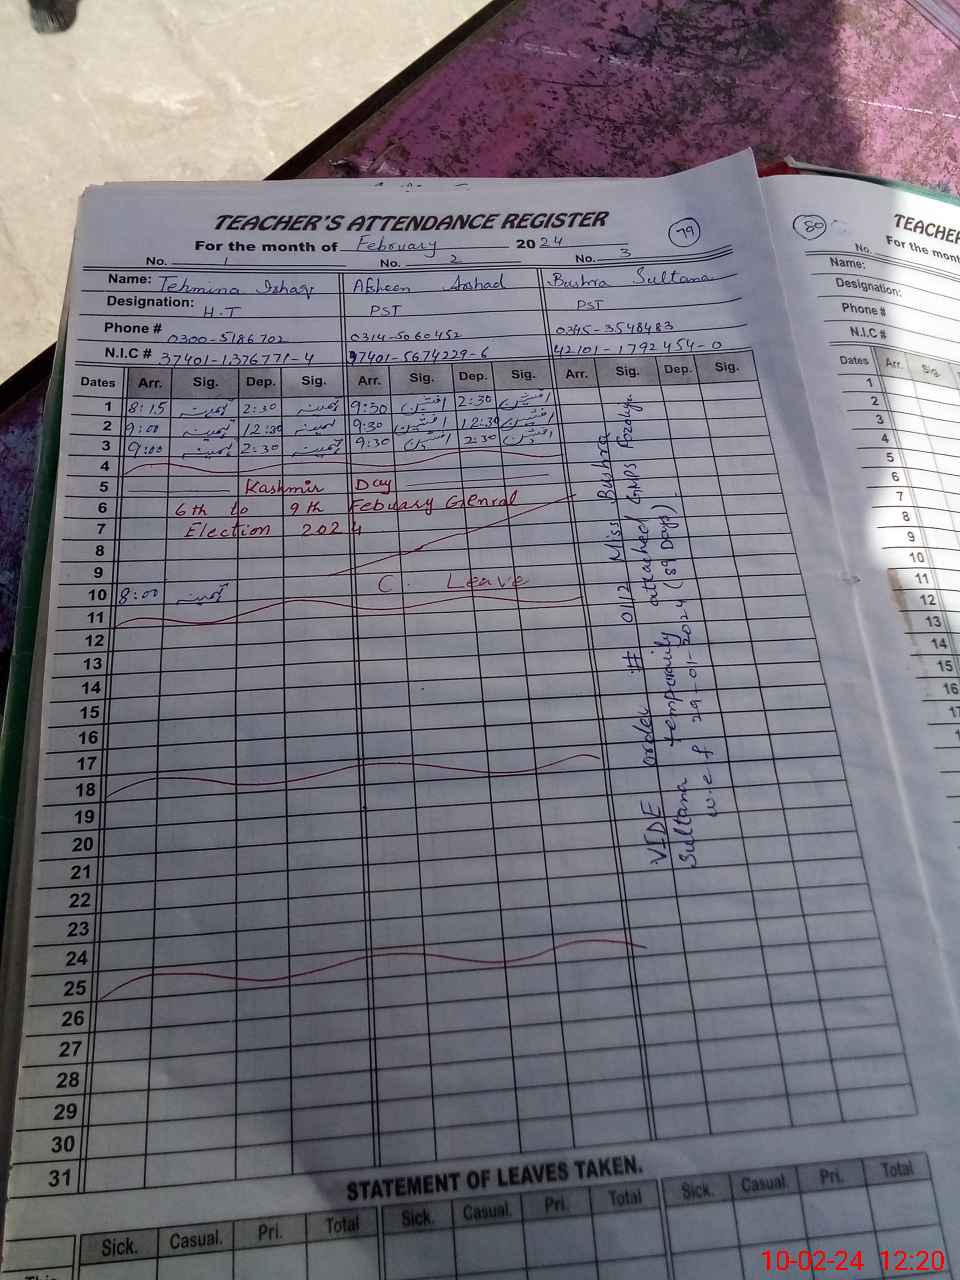 TEACHER'S ATTENDANCE REGISTER
For the month of February 2024
79
No. 1 No. 2 No. 3
Name: Tehmina Ishaq Afsheen Arshad Bushra Sultana
Designation: H.T PST PST
Phone # 0300-5186702 0314-5060452 0345-3548483
N.I.C # 37401-1376771-4 37401-5674229-6 42101-1792454-0
Dates Arr. Sig. Dep. Sig. Arr. Sig. Dep. Sig. Arr. Sig. Dep. Sig.
1 8:15 تہمینہ 2:30 تہمینہ 9:30 افشین 2:30 افشین
2 9:00 تہمینہ 12:30 تہمینہ 9:30 افشین 12:30 افشین
3 9:00 تہمینہ 2:30 تہمینہ 9:30 افشین 2:30 افشین
4
5 Kashmir Day
6 6th to 9th Febuary Genral
7 Election 2024
8
9
10 8:00 تہمینہ C. Leave
11
12
13
14
15
16
17
18
19
20
21
22
23
24
25
26
27
28
29
30
31
VIDE order # 01/2 Miss Bushra
Sultana temporarily attached GMPS
w.e.f 29-01-2024 (89 Days)
STATEMENT OF LEAVES TAKEN.
Sick. Casual. Pri. Total Sick. Casual. Pri. Total Sick. Casual. Pri. Total
This
80
TEACHER
For the mont
No.
Name:
Designation:
Phone #
N.I.C #
Dates Arr. Sig.
1
2
3
4
5
6
7
8
9
10
11
12
13
14
15
16
17
10-02-24 12:20